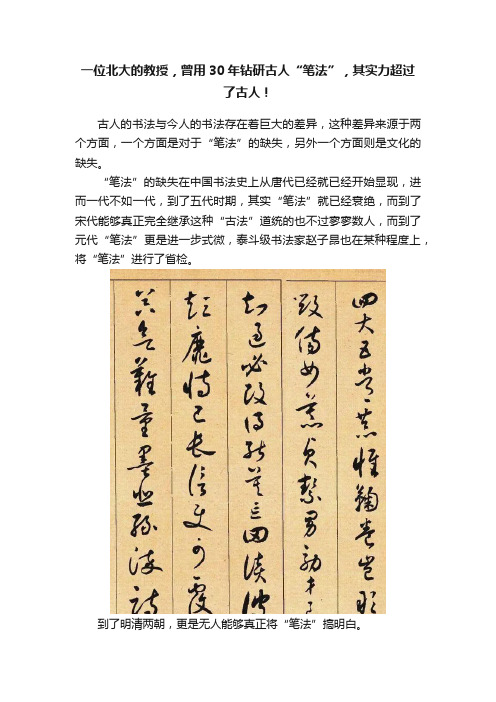 一位北大的教授，曾用30年钻研古人“笔法”，其实力超过
了古人！
古人的书法与今人的书法存在着巨大的差异，这种差异来源于两
个方面，一个方面是对于“笔法”的缺失，另外一个方面则是文化的
缺失。
“笔法”的缺失在中国书法史上从唐代已经就已经开始显现，进
而一代不如一代，到了五代时期，其实“笔法”就已经衰绝，而到了
宋代能够真正完全继承这种“古法”道统的也不过寥寥数人，而到了
元代“笔法”更是进一步式微，泰斗级书法家赵子昂也在某种程度上，
将“笔法”进行了省检。
四大五常恭惟鞠養豈敢
毀傷女慕貞絜男効才
知過必改得能莫忘罔談彼
短靡恃己長信使可覆
器欲難量墨悲絲染詩
到了明清两朝，更是无人能够真正将“笔法”搞明白。